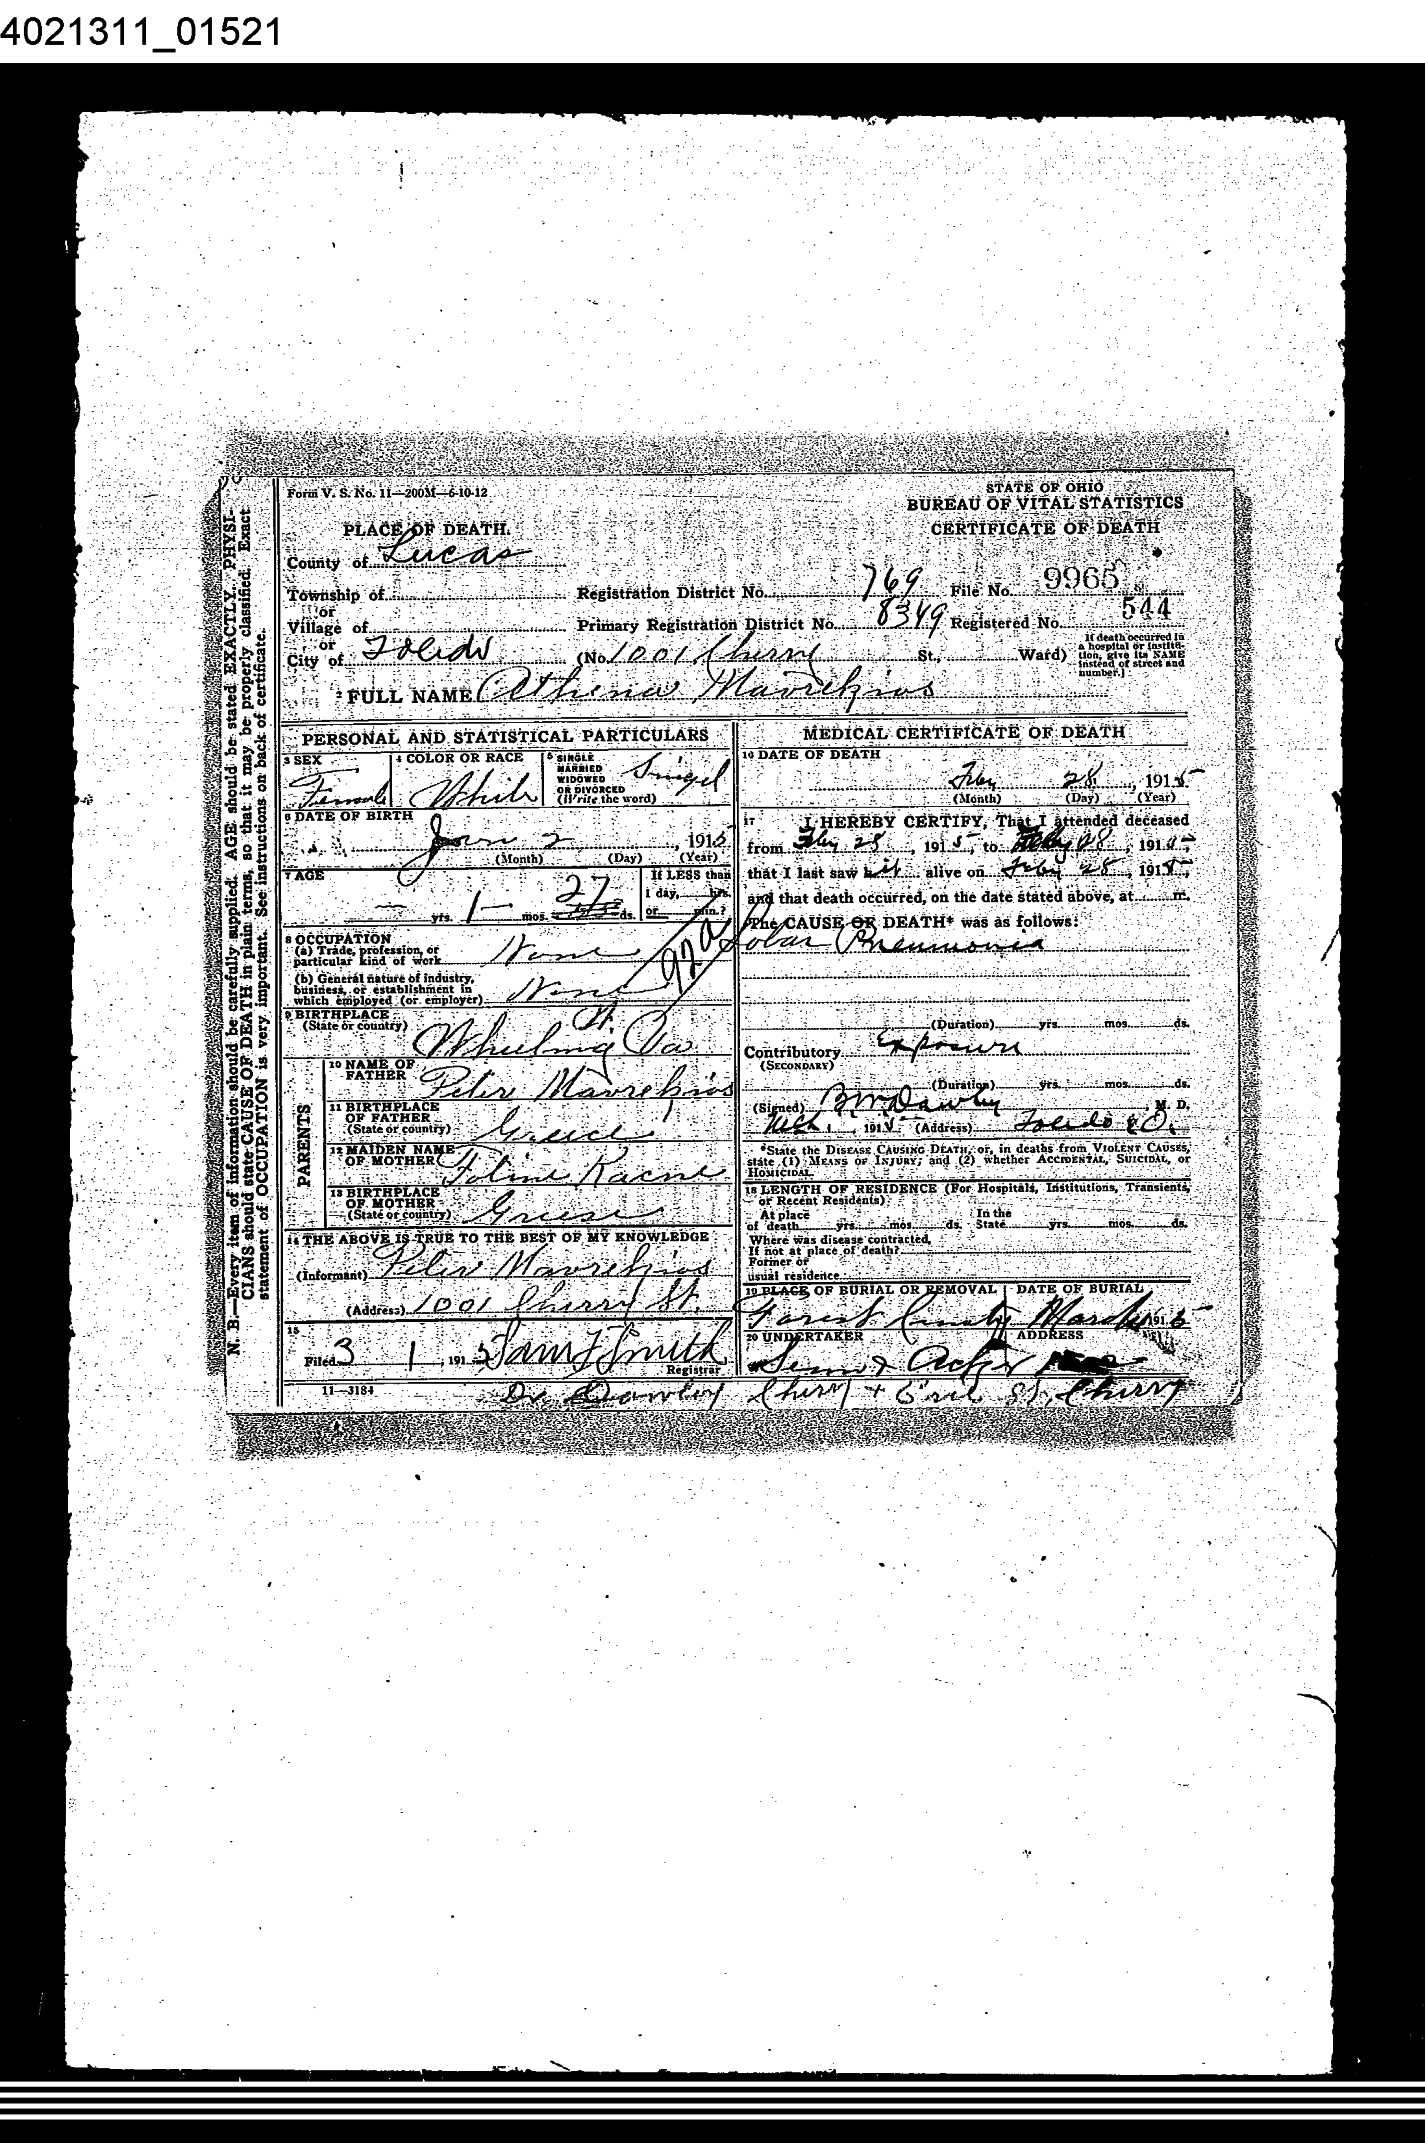 4021311_01521
Form V. S. No. 11—200M—6-10-12
STATE OF OHIO
BUREAU OF VITAL STATISTICS
CERTIFICATE OF DEATH
PLACE OF DEATH.
County of Lucas
Township of
or
Village of
or
City of Toledo
Registration District No. 769 File No. 9965
Primary Registration District No. 8349 Registered No. 544
(No. 1001 Cherry St., Ward)
If death occurred in
a hospital or institu-
tion, give its NAME
instead of street and
number.]
2 FULL NAME Athena Mavrekios
PERSONAL AND STATISTICAL PARTICULARS
3 SEX
Female
4 COLOR OR RACE
White
5 SINGLE
MARRIED
WIDOWED
OR DIVORCED
(Write the word)
Singel
6 DATE OF BIRTH
Jan 2, 1915
(Month) (Day) (Year)
7 AGE
— yrs. 1 — mos. 27 ds.
If LESS than
1 day, hrs.
or min.?
8 OCCUPATION
(a) Trade, profession, or
particular kind of work None
(b) General nature of industry,
business, or establishment in
which employed (or employer) None
92a
9 BIRTHPLACE
(State or country)
Wheeling W. Va.
PARENTS
10 NAME OF
FATHER Peter Mavrekios
11 BIRTHPLACE
OF FATHER
(State or country) Greece
12 MAIDEN NAME
OF MOTHER Foline Racne
13 BIRTHPLACE
OF MOTHER
(State or country) Greese
14 THE ABOVE IS TRUE TO THE BEST OF MY KNOWLEDGE
(Informant) Peter Mavrekios
(Address) 1001 Cherry St.
15
Filed 3 1, 1915 Sam F Smith
Registrar
11—3184
MEDICAL CERTIFICATE OF DEATH
16 DATE OF DEATH
Feby 28, 1915
(Month) (Day) (Year)
17 I HEREBY CERTIFY, That I attended deceased
from Feby 25, 1915, to Feby 28, 1915,
that I last saw h it alive on Feby 25, 1915,
and that death occurred, on the date stated above, at m.
The CAUSE OF DEATH* was as follows:
Lobar Pneumonia
(Duration) yrs. mos. ds.
Contributory Exposure
(SECONDARY)
(Duration) yrs. mos. ds.
(Signed) B M Dawley M. D.
Mch 1, 1915 (Address) Toledo O.
*State the DISEASE CAUSING DEATH, or, in deaths from VIOLENT CAUSES,
state (1) MEANS OF INJURY; and (2) whether ACCIDENTAL, SUICIDAL, or
HOMICIDAL.
18 LENGTH OF RESIDENCE (For Hospitals, Institutions, Transients,
or Recent Residents)
At place
of death yrs. mos. ds.
In the
State yrs. mos. ds.
Where was disease contracted,
If not at place of death?
Former or
usual residence
19 PLACE OF BURIAL OR REMOVAL
Forest
DATE OF BURIAL
March 1 1915
20 UNDERTAKER
ADDRESS
Dr. Dawley Cherry + Erie St. Cherry
N. B.—Every item of information should be carefully supplied. AGE should be stated EXACTLY. PHYSI-
CIANS should state CAUSE OF DEATH in plain terms, so that it may be properly classified. Exact
statement of OCCUPATION is very important. See instructions on back of certificate.